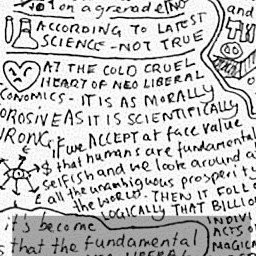 on a grand
NO
and
ACCORDING TO LATEST
SCIENCE - NOT TRUE
AT THE COLD CRUEL
HEART OF NEO LIBERAL
CONOMICS - IT IS AS MORALLY
OROSIVE AS IT IS SCIENTIFICALLY
WRONG
if we ACCEPT at face value
$ that humans are fundamental
selfish and we look around a
£ all the unambiguous prosperity
the world. THEN IT FOLL
LOGICALLY THAT BILLIO
it's become
s that the fundamental
INDIVI
ACTS O
MAGICA